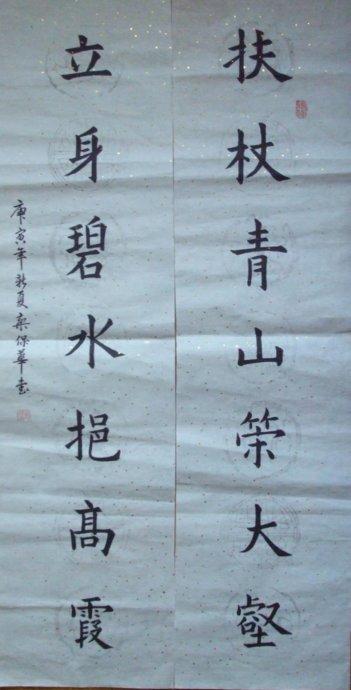 扶杖青山荣大壑
立身碧水挹高霞
庚寅年新夏 保華书